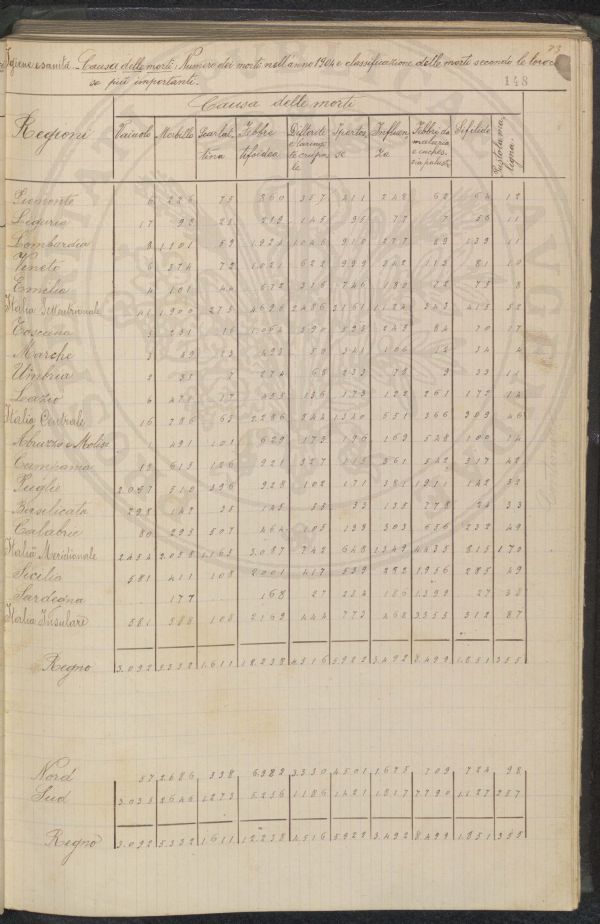 73
Igiene e sanità. Causa delle morti: Numero dei morti nell'anno 1904 e classificazione delle morti secondo le loro cau
se più importanti.
148
Causa delle morti
Regioni Vaiuolo Morbillo Scarlat- Febbre Difterite Influen Febbri da Sifilide Pustola ma
tina tifoidea e laringi za malaria ligna.
Piemonte 6 226 75 860 357 211 248 62 64 12
Liguria 17 98 25 219 145 95 77 7 56 11
Lombardia 8 1101 59 1924 1046 910 277 89 139 11
Veneto 6 374 72 1021 622 999 342 113 81 10
Emilia 4 101 44 672 316 746 180 72 75 8
Italia Settentrionale 41 1.900 275 4696 2486 1124 343 415 52
Toscana 5 231 16 1.064 590 593 245 84 70 17
Marche 3 89 495 50 341 106 34 4
Umbria 2 35 7 274 68 233 78 9 33 11
Lazio 6 17 455 136 173 122 261 172 14
Italia Centrale 16 786 63 2286 844 1340 551 366 309 46
Abruzzi e Molise 1 491 101 629 173 196 163 548 100 14
Campania 615 126 921 327 115 361 542 317 42
Puglie 2.057 510 396 928 102 171 381 1911 142 32
Basilicata 298 142 35 145 35 33 135 778 24 33
Calabrie 80 295 507 464 105 133 303 656 232 49
Italia Meridionale 2454 2.058 1.165 3.087 742 648 1349 4435 815 170
Sicilia 581 411 108 2001 417 539 282 1956 285 49
Sardegna 177 168 27 234 186 1399 27 38
Italia Insulare 581 588 108 2169 444 773 468 3355 312 87
Regno 3.092 5332 1.611 12.238 4516 5922 3.492 8.499 1.851 355
Nord 57 2.686 338 6982 3330 4501 1675 709 724 98
Sud 3.035 2646 1.273 5256 1186 1421 1817 7790 1.127 257
Regno 3.092 5.332 1611 12.238 4.516 5922 3.492 8.499 1.851 355